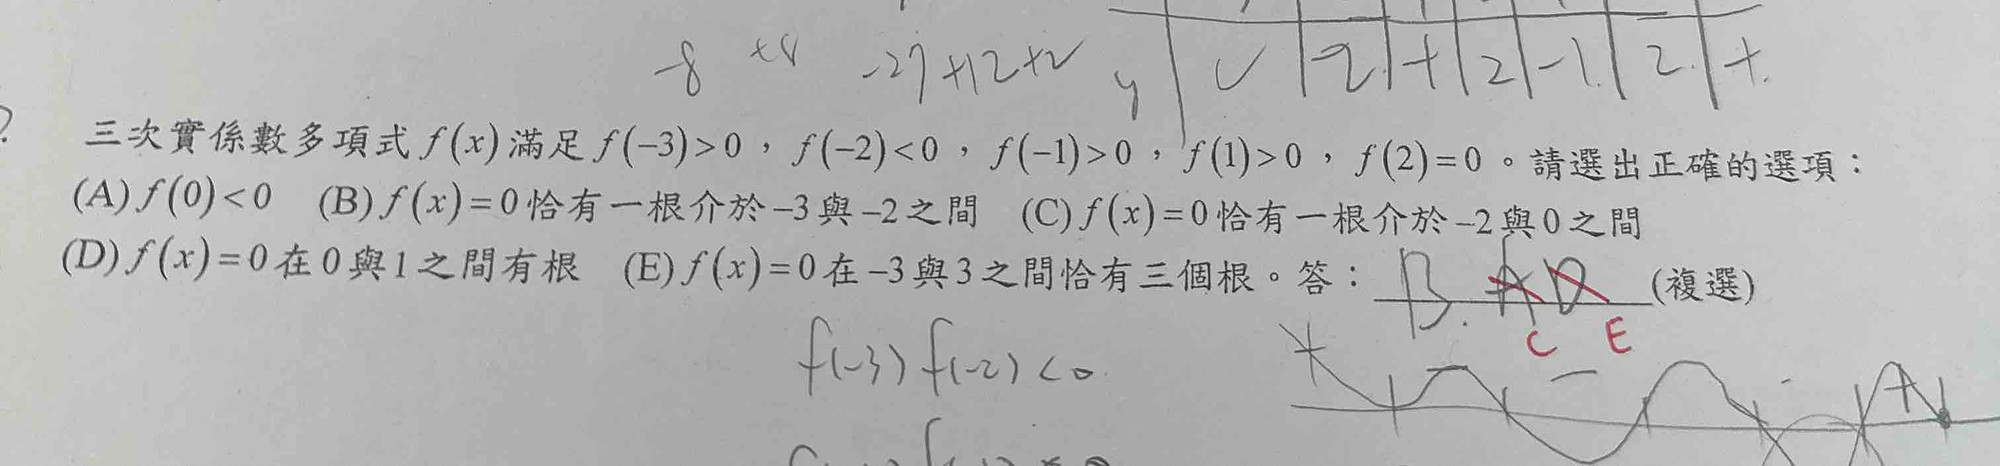 -8 +8 -27+12+2 y 2 + 2 -1 2 +
三次實係數多項式 f(x) 滿足 f(-3)>0，f(-2)<0，f(-1)>0，f(1)>0，f(2)=0。請選出正確的選項：
(A) f(0)<0 (B) f(x)=0 恰有一根介於 -3 與 -2 之間 (C) f(x)=0 恰有一根介於 -2 與 0 之間
(D) f(x)=0 在 0 與 1 之間有根 (E) f(x)=0 在 -3 與 3 之間恰有三個根。答：B. A D (複選)
C E
f(-3) f(-2) < 0
+